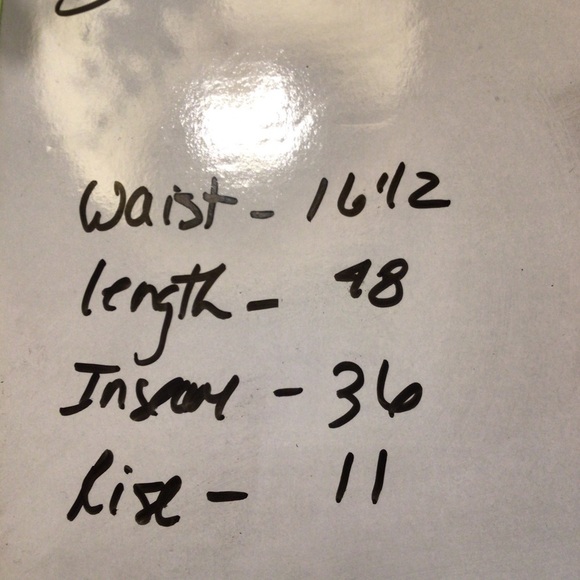 Waist - 16 1/2
length - 48
Inseam - 36
Rise - 11